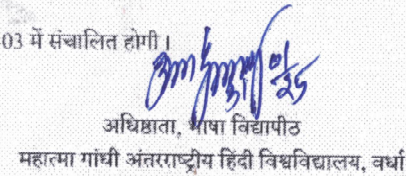 03 में संचालित होगी।
अधिष्ठाता, भाषा विद्यापीठ
महात्मा गांधी अंतरराष्ट्रीय हिंदी विश्वविद्यालय, वर्धा